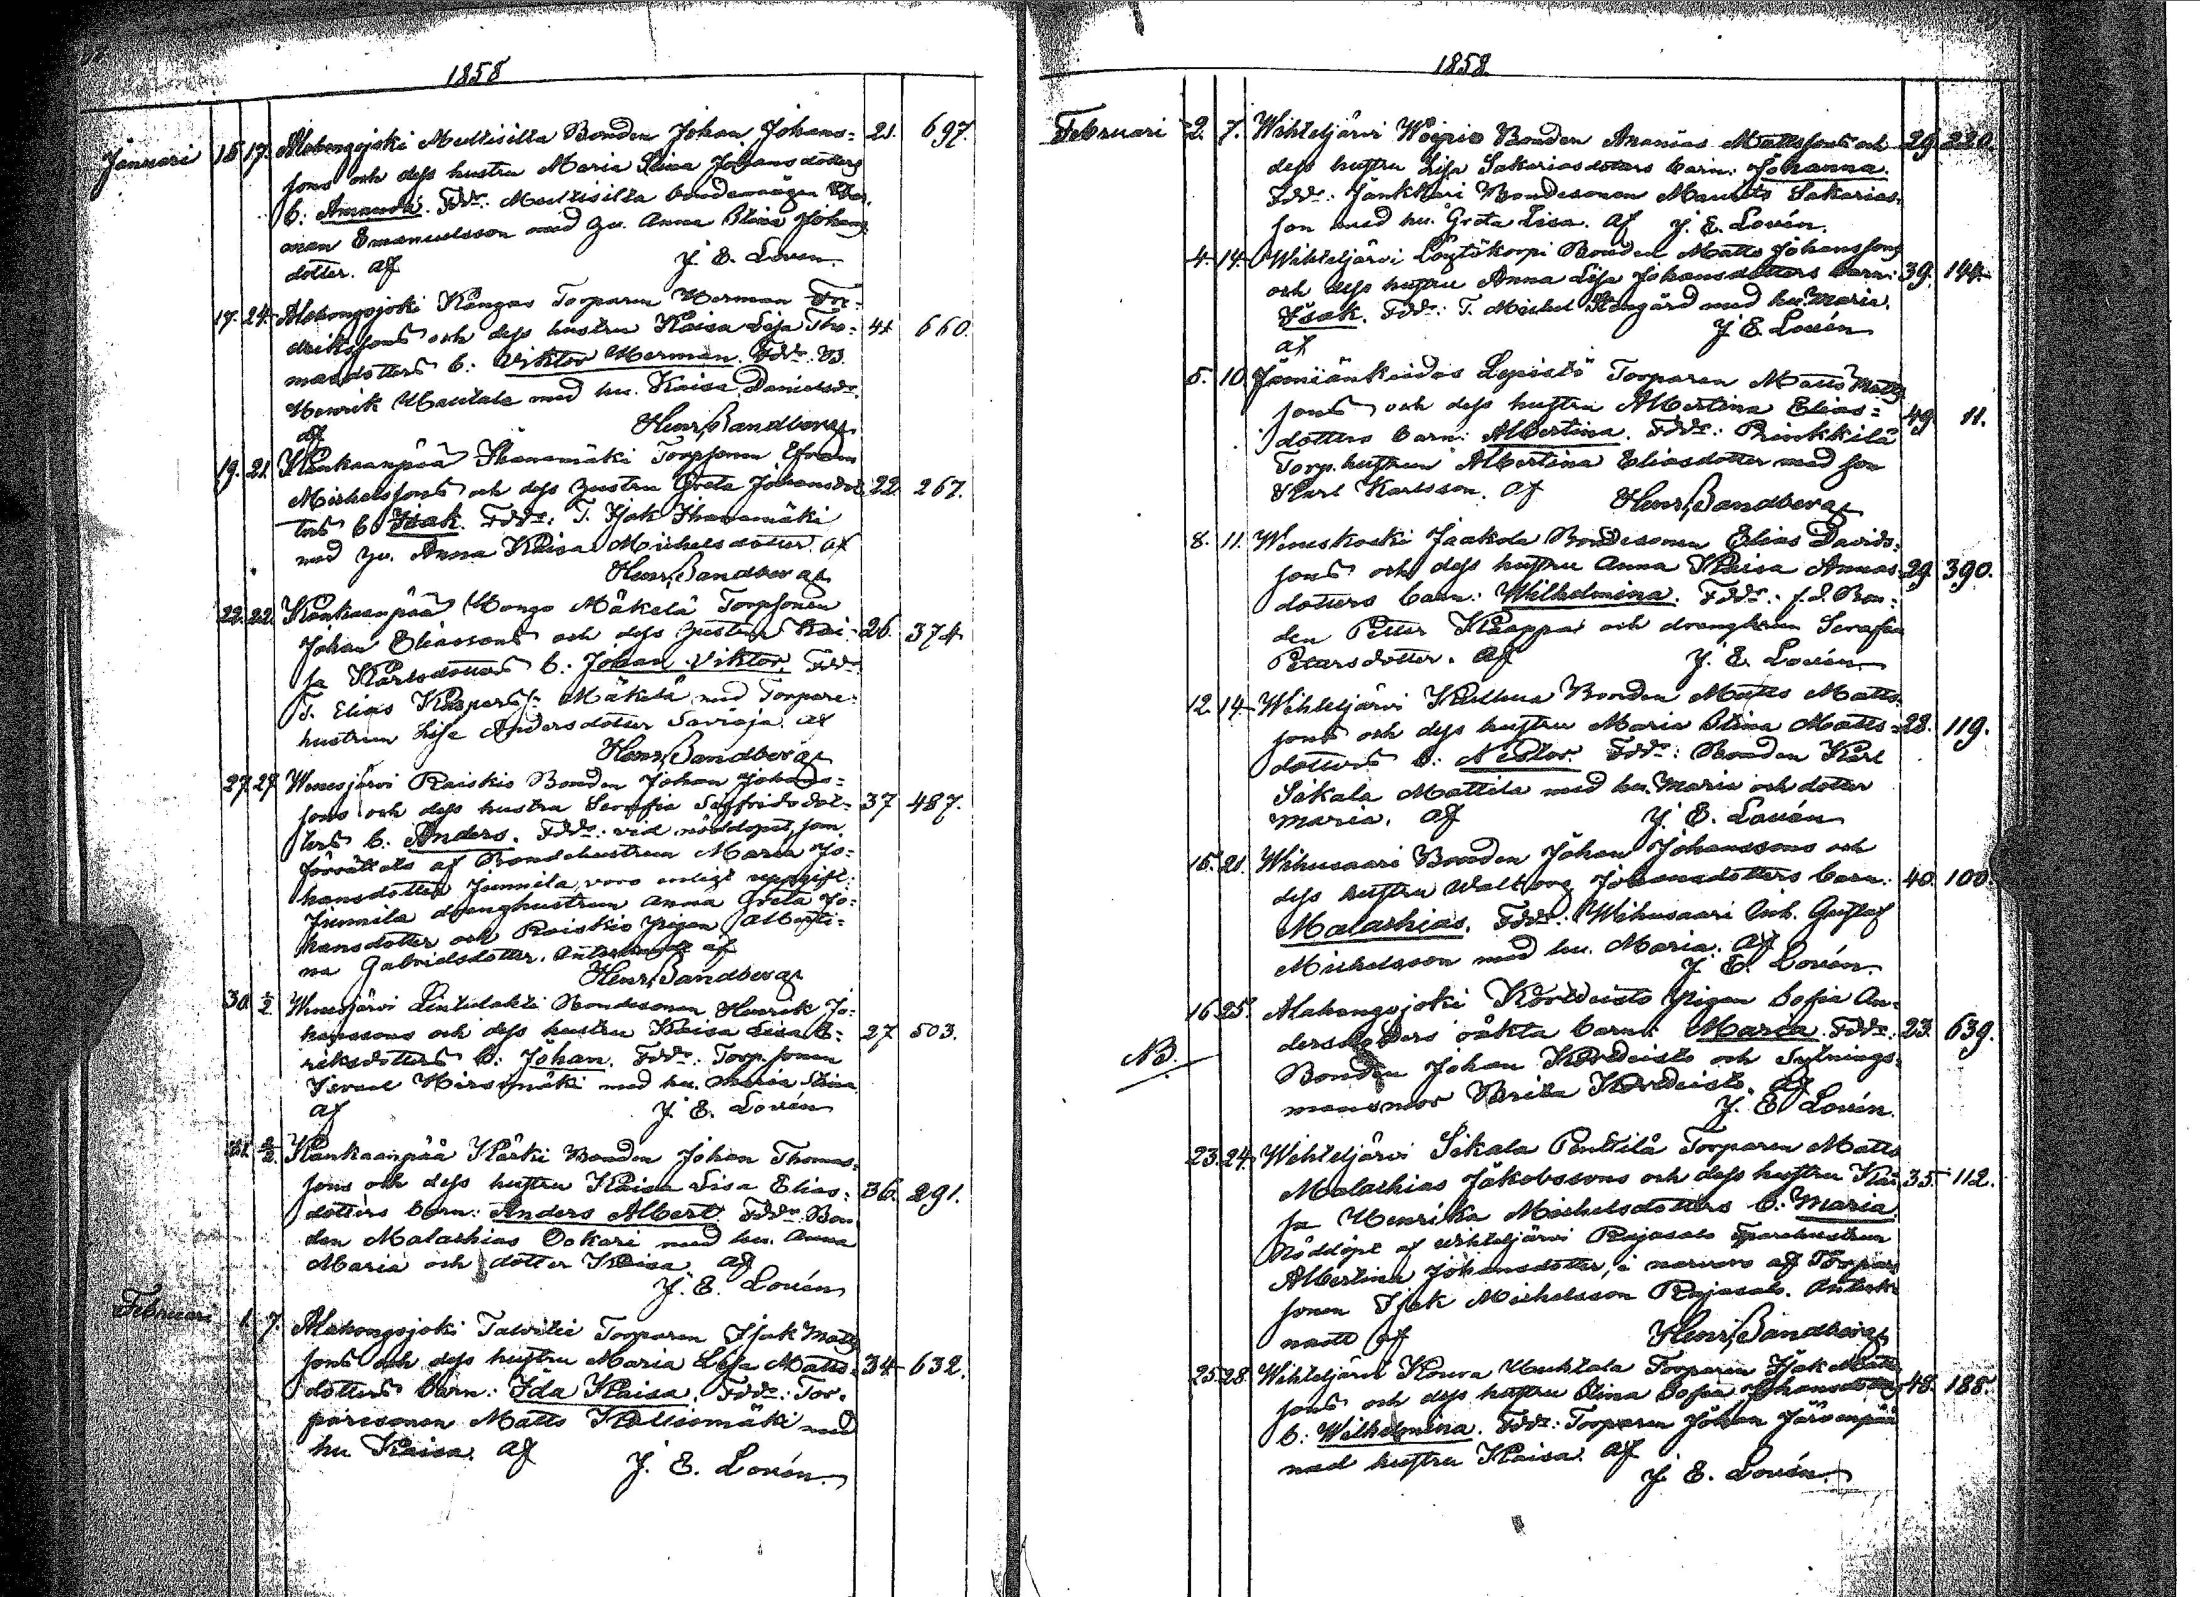 1858
Januari 15 17. Alahongojoki Multisilta Bonden Johan Johans= 21. 697.
sons och dess hustru Maria Lisa Johansdotters
b: Amanda. Fdr: Multisilta bondemågen
Emanuelsson med hu. Anna Stina Johans
dotter. af J. E. Lovén.
17. 24. Alahongojoki Kangas Torparen Herman Fre=
driksons och dess hustru Kaisa Lisa Tho= 41 660.
masdotters b: Viktor Herman. Fdr: B.
Henrik Uusitalo med hu. Kaisa Danielsdr.
af Henr. Sandberg
19. 21. Kankaanpää Ihanamäki Torpsonen Efraim
Michelssons och dess hustru Greta Johansdot 22. 267.
ters b Isak. Fdr: T. Isak Ihanamäki
med hu. Anna Kaisa Michelsdotter. af
Henr. Sandberg
22. 22. Kankaanpää Hongo Mäkelä Torpsonen
Johan Eliassons och dess hustru Kai= 26. 374.
sa Karlsdotters b: Johan Viktor Fdr
T. Elias Kaspers s. Mäkelä med Torpare=
hustrun Lisa Andersdotter Savioja. af
Henr. Sandberg
27. 27. Wenesjärvi Raiskio Bonden Johan Johans=
sons och dess hustru Serafia Sigfridsdot= 37 487.
ters b: Anders. Fdr: vid nöddopet, som
förrättats af Bondehustrun Maria Jo=
hansdotter Junnila, voro enligt uppgift:
Junnila drenghustrun Anna Greta Jo=
hansdotter och Raiskio Pigan Alberti=
na Gabrielsdotter. Antecknadt af
Henr. Sandberg
30. 2/2 Wenesjärvi Lintulahti Bondesonen Henrik Jo=
hanssons och dess hustru Kaisa Lisa E= 27 503.
riksdotters b: Johan. Fdr: Torp. sonen
Israel Hirsimäki med hu. Maria Stina
af J. E. Lovén
31. 2/2 Kankaanpää Kärki Bonden Johan Thomas=
sons och dess hustru Kaisa Lisa Elias= 36. 291.
dotters barn: Anders Albert. Fdr: Bon
den Malachias Ookari med hu. Anna
Maria och dotter Kaisa af
J. E. Lovén
Februari 1. 7. Alahongojoki Talvitie Torparen Isak Matts
sons och dess hustru Maria Lisa Matts= 34 632.
dotters barn: Ida Kaisa. Fdr: Tor=
paresonen Matts Kalliomäki med
hu Kaisa. af J. E. Lovén.
1858
Februari 2. 7. Wihteljärvi Woipio Bonden Ananias Mattssons och 29. 220.
dess hustru Lisa Sakariasdotters barn: Johanna.
Fdr: Jänkkäri Bondesonen Maurits Sakarias=
son med hu. Greta Lisa. af J. E. Lovén.
4. 14. Wihteljärvi Löytökorpi Bonden Matts Johanssons
och dess hustru Anna Lisa Johansdotters barn: 39. 144.
Isak. Fdr: T. Michel Kongärd med hu. Maria.
af J. E. Lovén
5. 10. Jämiänkeidas Lepistö Torparen Matts Matts
sons och dess hustru Albertina Elias= 49 11.
dotters barn: Albertina. Fdr: Prinkkilä
Torp. hustrun Albertina Eliasdotter med son
Karl Karlsson. af Henr. Sandberg
8. 11. Wineskoski Jaakola Bondesonen Elias Davids=
sons och dess hustru Anna Kaisa Annas 29. 390.
dotters barn: Wilhelmina. Fdr: f.d. Bon=
den Petter Knappa och drenghrun Serafia
Petersdotter. af J. E. Lovén
12. 14. Wihteljärvi Kulhua Bonden Matts Matts
sons och dess hustru Maria Stina Matts= 28. 119.
dotters b: Nestor. Fdr: Bonden Karl
Sikala Mattila med hu. Maria och dotter
Maria. af J. E. Lovén
15. 21. Wihusaari Bonden Johan Johanssons och
dess hustru Walborg Johansdotters barn: 40. 100.
Malachias. Fdr: Wihusaari Inh. Gustaf
Michelsson med hu. Maria. af
J. E. Lovén.
16 25. Alahongojoki Kortteisto Pigan Sofia An=
dersdotters oäkta barn: Maria. Fdr: 23. 639.
NB. Bonden Johan Kortteisto och Sytnings=
mans mor Brita Kortteisto. af
J. E. Lovén.
23. 24. Wihteljärvi Sikala Penttilä Torparen Matts
Malachias Jakobssons och dess hustru Kai 35. 112.
sa Henrika Michelsdotters b: Maria
Nöddöpt af Wihteljärvi Rajasalo Sparehustrun
Albertina Johansdotter, i närvaro af Torpare
sonen Isak Michelsson Rajasalo. Anteck
nadt af Henr. Sandberg
25 28. Wihteljärvi Koura Uusitalo Torparen Isak Matts
sons och dess hustru Stina Sofia Johansdotters 48. 188.
b: Wilhelmina. Fdr: Torparen Johan Järvenpää
med hustru Kaisa. af
J. E. Lovén.